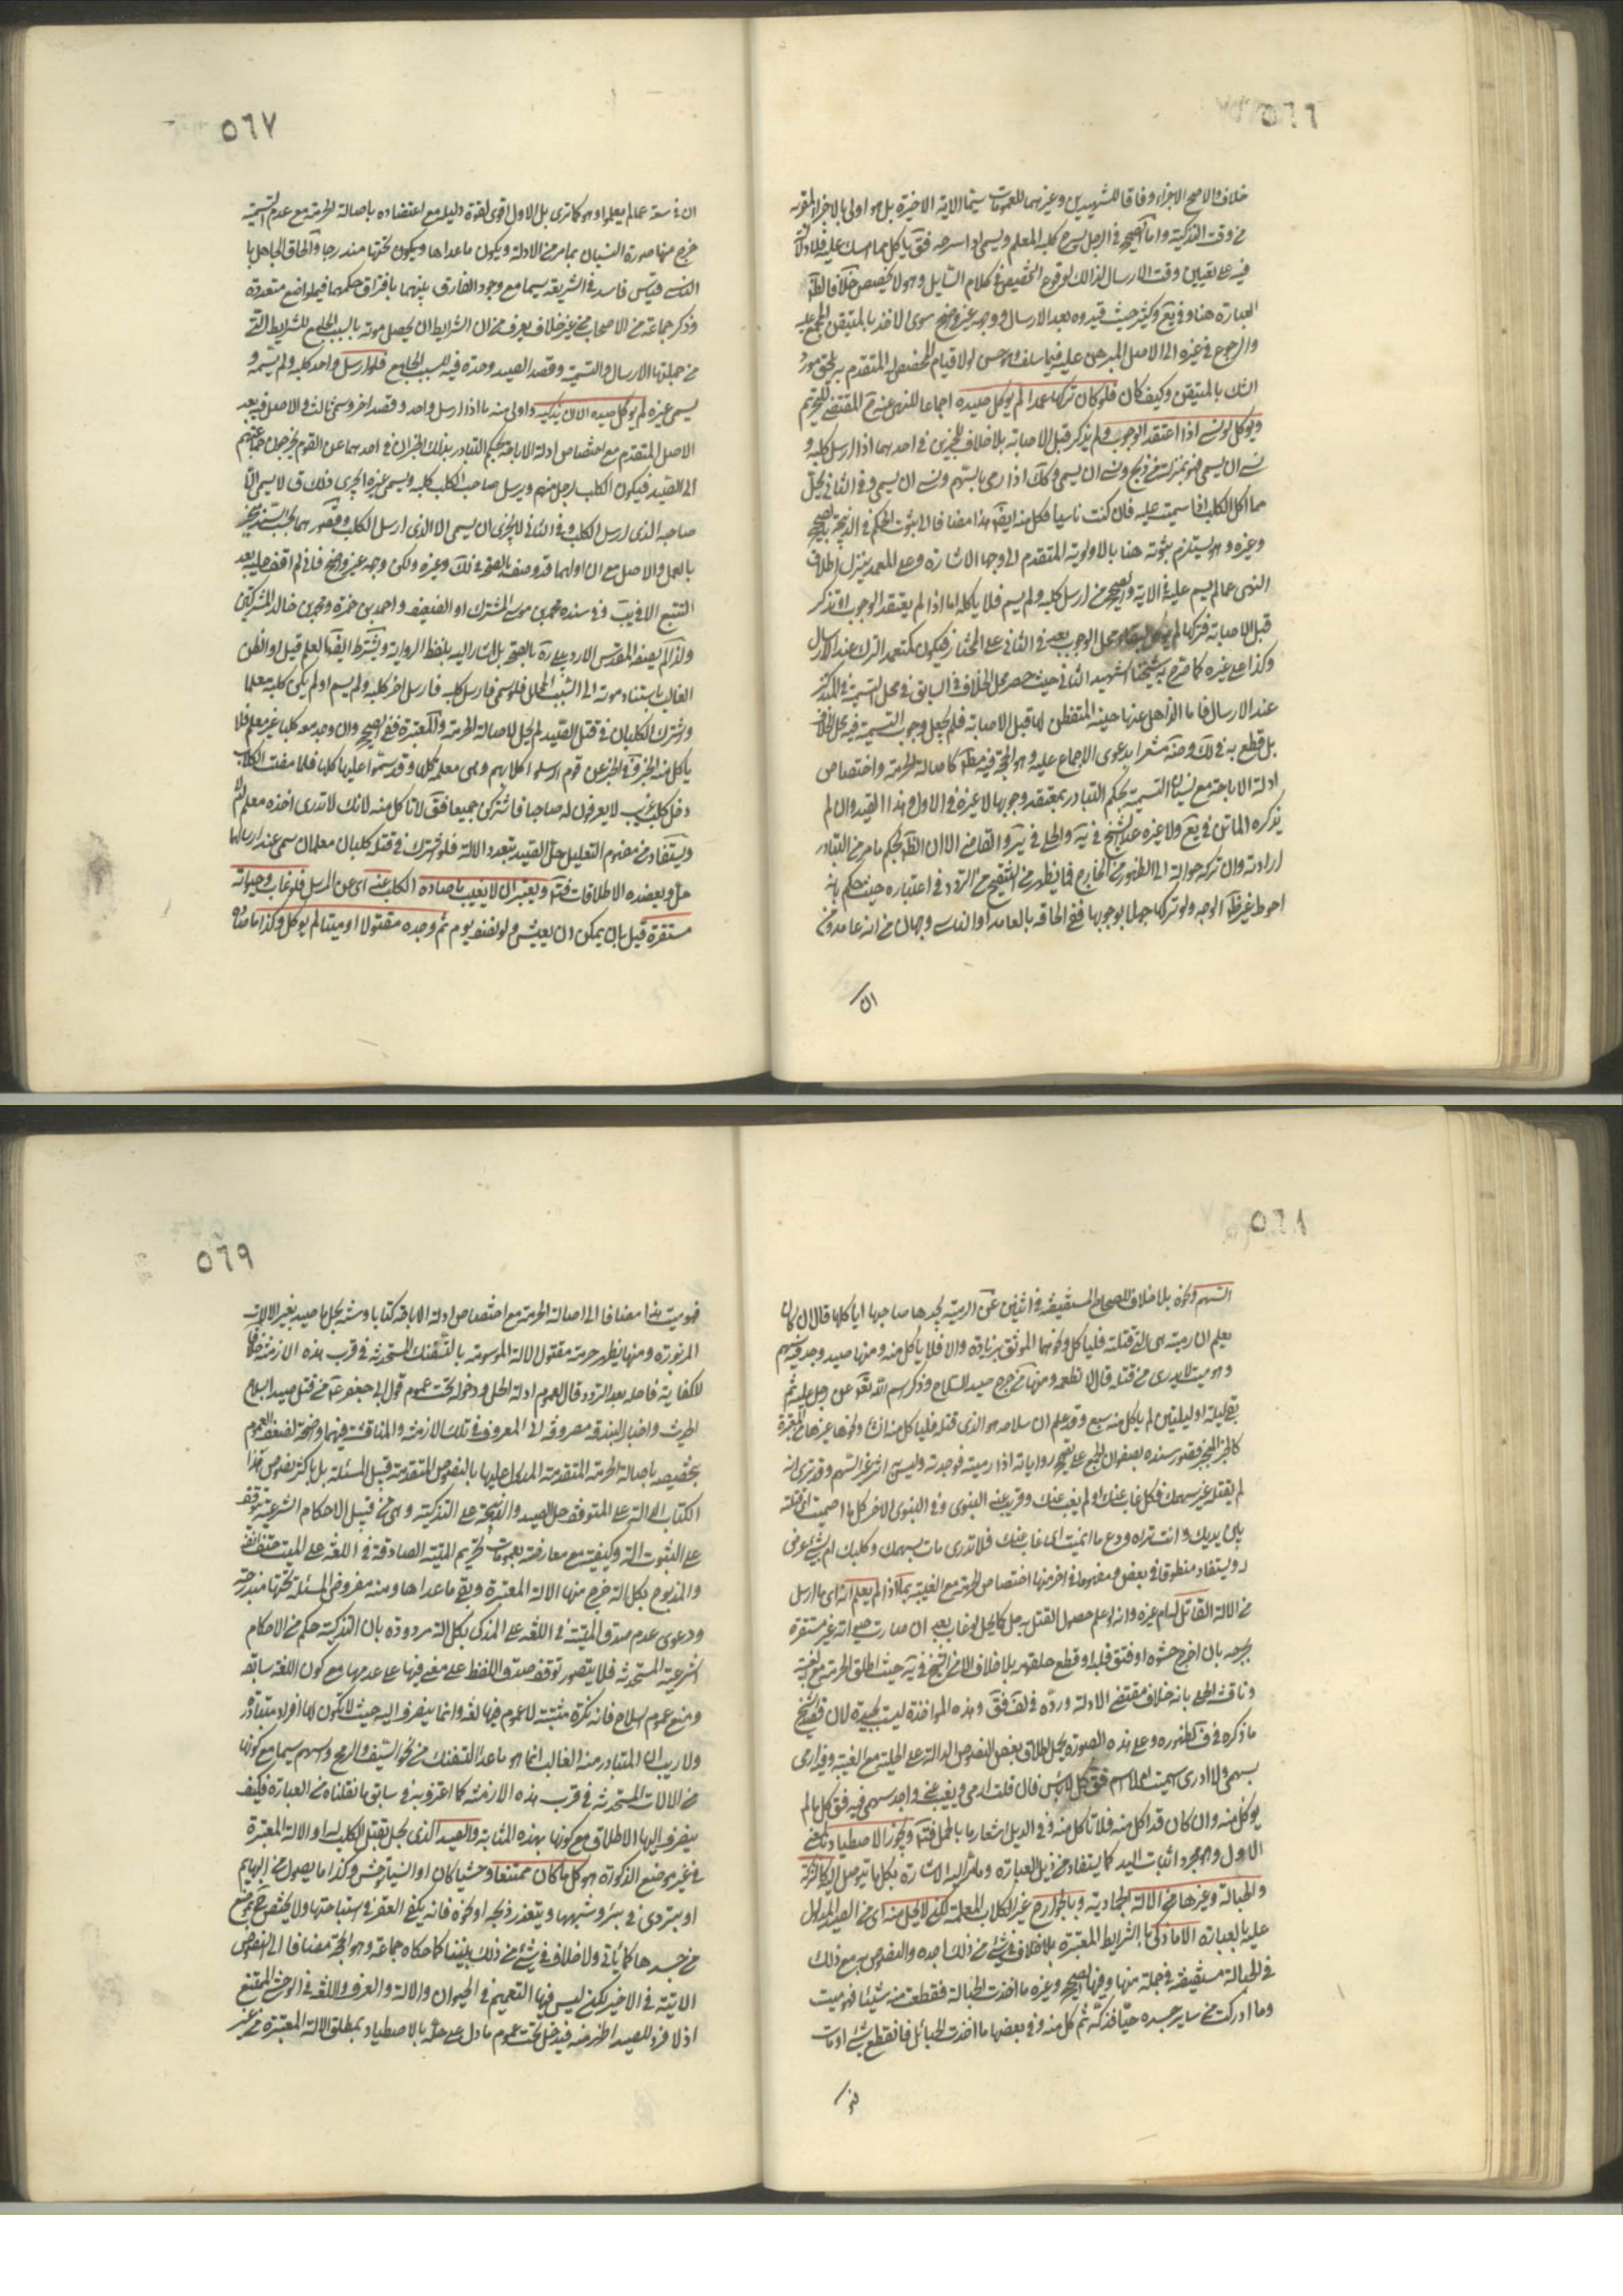 ٥٦٦
خلاف والاصح الاجزاء وفاقا للشهيدين وغيرهما للعمومات سيما الاية الاخيرة بل هو اولى بالاجزاء لقربه
من وقت التذكية واما الصحيح في الرجل يسرح كلبه المعلم ويسمى اذا سرحه فقال يأكل مما امسك عليه فلا دلالة
فيه على تعيين وقت الارسال لذلك لوقوع التخصيص في كلام السايل وهو لا يخصص خلافا لظاهر
العبارة هنا وفي يع وكثير حيث قيدوه بعد الارسال ووجهه غير واضح سوى الاخذ بالمتيقن المجمع عليه
والرجوع في غيره الى الاصل المبرهن عليه فيما سلف وهو حسن لولا قيام المخصص له المتقدم به يلحق مورد
الشك بالمتيقن وكيف كان فلو كان تركها عمدا لم يوكل صيده اجماعا للنهى عنه المقتضى للتحريم
ويوكل لو نسى اذا اعتقد الوجوب ولم يذكر قبل الاصابة بلا خلاف للخبرين في احدهما اذا ارسل كلبه و
نسى ان يسمى فهو بمنزلة من ذبح ونسى ان يسمى وكك اذا رمى بالسهم ونسى ان يسمى وفي الثاني يحل
مما اكل الكلب اذا سميت عليه فان كنت ناسيا فكل منه ايضا هذا مضافا الى ثبوت الحكم في الذبيحة بالصحيح
وغيره وهو يستلزم ثبوته هنا بالاولوية المتقدم الى وجهها الاشارة وعلى المعمد ينزل اطلاق
النهى عما لم يسم عليه في الاية والصحيح من ارسل كلبه ولم يسم فلا يأكله اما اذا لم يعتقد الوجوب او تذكر
قبل الاصابة فتركها لم يحل لبقاء محل الوجوب بعد في الثاني على المختار فيكون كمتعمد الترك عند الارسال
وكذا على غيره كما صرح به شيخنا الشهيد الثاني حيث حصر محل الخلاف في السابق في محل التسمية في المتذكر
عند الارسال فاما الذاهل عنها حينه المتفطن لها قبل الاصابة فلم يجعل وجوب التسمية فيه محل خلاف
بل قطع به في لك وضه مشعرا بدعوى الاجماع عليه وهو الحجة فيه مظ كاصالة الحرمة واختصاص
ادلة الاباحة مع نسيان التسمية بحكم التبادر بمعتقد وجوبها لا غيره في الاول وهذا القيد وان لم
يذكره الماتن في يع ولا غيره عدا الشيخ في يه والحلى في ئر والقاضى الا ان الظ بحكم ما مر من التبادر
ارادته وان تركه حوالة الى الظهور من الخارج فما يظهر من التنقيح من التردد في اعتباره حيث حكم بانه
احوط غير ظ الوجه ولو تركها جهلا بوجوبها ففي الحاقه بالعامد او الناسى وجهان من انه عامد ومن
ان
٥٦٧
ان في سعة عما لم يعلموا وهو كما ترى بل الاول اقوى لقوة دليله مع اعتضاده باصالة الحرمة مع عدم التسمية
خرج منها صورة النسيان بما مر من الادلة ويكون ما عداها ويكون تحتها مندرجا والحاق الجاهل با
الناسى قياس فاسد في الشريعة سيما مع وجود الفارق بينهما بافتراق حكمهما في مواضع متعددة
وذكر جماعة من الاصحاب من غير خلاف يعرف من ان الشرايط ان يحصل موته بالسبب الجامع للشرايط التى
من جملتها الارسال والتسمية وقصد الصيد وحدة فيه السبب الجامع فلو ارسل واحد كلبه ولم يسمه و
يسمى غيره لم يوكل صيده الا ان يذكيه واولى منه ما اذا ارسل واحد وقصد اخر وسمى ثالث والاصل فيه بعد
الاصل المتقدم مع اختصاص ادلة الاباحة بحكم التبادر بذلك الخبران في احدهما عن القوم يخرجون جماعتهم
الى الصيد فيكون الكلب لرجل منهم ويرسل صاحب الكلب كلبه ويسمى غيره ايجزى ذلك قال لا يسمى الا
صاحبه الذى ارسل الكلب وفي الثاني لا يجزى ان يسمى الا الذى ارسل الكلب وقصورهما بحسب السند منجبر
بالعمل والاصل مع ان اولهما قد وصفه بالصحة في لك وغيره ولكن وجهه غير واضح فانى لم اقف عليه بعد
التتبع الا في يب وفي سنده محمد بن موسى المشترك او الضعيف واحمد بن حمزة ومحمد بن خالد المشتركين
ولذا لم يصفه المقدس الاردبيلى ره بالصحة بل اشار اليه بلفظ الرواية ويشترط ايضا العلم قيل او الظن
الغالب باستناد موته الى السبب المحلل فلو سمى فارسل كلبه فارسل اخر كلبه ولم يسم او لم يكن كلبه معلما
واشترك الكلبان في قتل الصيد لم يحل لاصالة الحرمة والمعتبرة ففي الصحيح وان وجد معه كلبا غير معلم فلا
يأكل منه الخبر وفي الخبر عن قوم ارسلوا كلابهم وهى معلمة كلها وقد سموا عليها كلها فلما مضت الكلاب
دخل كلب غريب لا يعرفون له صاحبا فاشتركن جميعا فقال لا تأكل منه لانك لا تدرى اخذه معلم ام لا
ويستفاد من مفهوم التعليل حل الصيد بتعدد الالة فلو اشترك في قتله كلبان معلمان سمى عند ارسالهما
حل ويعضده الاطلاقات فت ويعتبر ان لا يغيب ما صاده الكلب عنه اى عن المرسل فلو غاب وحيوته
مستقرة قيل بان يمكن ان يعيش ولو نصف يوم ثم وجده مقتولا او ميتا لم يوكل وكذا ما صاده
٥٦٨
السهم ونحوه بلا خلاف للصحاح المستفيضة في اثنين عن الرمية يجدها صاحبها ايأكلها قال ان كان
يعلم ان رميته هى التى قتلته فليأكل ونحوهما الموثق بزيادة والا فلا يأكل منه ومنها صيد وجد فيه سهم
وهو ميت لا يدرى من قتله قال لا تطعمه ومنها من جرح صيد السلاح وذكر اسم الله تعالى عز وجل عليه ثم
بقى ليلة او ليلتين لم يأكل منه سبع وقد علم ان سلاحه هو الذى قتله فليأكل منه ان شاء ونحوها غيرها من المعتبرة
كالخبر المنجبر قصور سنده بصفوان المجمع على تصحيح رواياته اذا رميته فوجدته وليس به اثر غير السهم وقد ترى انه
لم يقتله غير سهمك فكل غاب عنك او لم يغب عنك وقريب عنه النبوى وفي النبوى الاخر كل ما اصميت اى قتلته
بين يديك وانت تراه ودع ما انميت اى ما غاب عنك فلا تدرى مات بسهمك وكلبك ام بشىء عرض
له ويستفاد منطوقا في بعض ومفهوما في اخر منها اختصاص الحرمة مع الغيبة بما اذا لم يعلم انه اى ما ارسل
من الالة القاتل له ام غيره وانه لو علم حصول القتل به حل كما يحل لو غاب بعد ان صارت حيوته غير مستقرة
بجرحه بان اخرج حشوه او فتق قلبه او قطع حلقومه بلا خلاف الا من الشيخ في يه حيث اطلق الحرمة مع الغيبة
وناقشه الحلى بانه خلاف مقتضى الادلة ورده في لف فقال وهذه المواخذة ليست بجيدة لان قصد الشيخ
ما ذكره في ف لظهوره وعلى هذه الصورة يحمل اطلاق بعض النصوص الدالة على الحلية مع الغيبة وفيه ارمى
بسهمى ولا ادرى اسميت ام لم اسم فقال كل لا بأس قال قلت ارمى ويغيب عنى واجد سهمى فيه فقال كل ما لم
يوكل منه وان كان قد اكل منه فلا تاكل منه وفي الذيل اشعار ما بالحمل فت ويجوز الاصطياد بالمعنى
الاول وهو مجرد اثبات اليد كما يستفاد من ذيل العبارة ومر اليه الاشارة بكل ما يتوصل اليه كالشركة
والحبالة وغيرها من الالة الجمادية وبالجوارح غير الكلاب المعلمة لكن لا يحل منه اى من الصيد المدلول
عليه بالعبارة الا ما ذكى بالشرايط المعتبرة بلا خلاف في شىء من ذلك اجده والنصوص به مع ذلك
في الحبالة مستفيضة في جملة منها وفيها الصحيح وغيره ما اخذت الحبالة فقطعت منه شيئا فهو ميت
وما ادركت من ساير جسده حيا فذكه ثم كل منه وفي بعضها ما اخذت الحبائل فانقطع شىء او مات
فهو
٥٦٩
فهو ميت هذا مضافا الى اصالة الحرمة مع اختصاص ادلة الاباحة كتابا وسنة بحل ما صيد بغير الالات
المزبورة ومنها يظهر حرمة مقتول الالة الموسومة بالتفنك المستحدثة في قرب هذه الازمنة خلافا
للكفاية فاحله بعد التردد قال لعموم ادلة الحل ودخوله تحت عموم قول ابى جعفر ع من قتل صيدا بسلاح
الحديث واخبار البندقة مصروفة الى المعروف في تلك الازمنة والمناقشة فيهما واضحة لضعف العموم
بتخصيصه باصالة الحرمة المتقدمة المدلول عليها بالنصوص المتقدمة قبيل المسئلة بل باكثر نصوص هذا
الكتاب الدالة على المتوقف حل الصيد والذبيحة على التذكية وهى من قبيل الاحكام الشرعية يتوقف
على الثبوت الة وكيفية مع معارضته بعمومات تحريم الميتة الصادقة في اللغة على الميت حتف انفه
والمذبوح بكل الة خرج منها الالة المعتبرة وبقى ما عداها ومنه مفروض المسئلة تحتها مندرجة
ودعوى عدم صدق الميتة في اللغة على المذكى بكل الة مردودة بان التذكية حكم من الاحكام
الشرعية المستحدثة فلا يتصور توقف صدق اللفظ على معنى فيها على عدمها مع كون اللغة سابقة
ومنع عموم السلاح فانه نكرة مثبتة لا عموم فيها لغة وانما ينصرف اليه حيث لا يكون لها افراد متبادرة
ولا ريب ان المتبادر منه الغالب انما هو ما عدا التفنك من نحو السيف والرمح والسهم سيما مع كونها
من الالات المستحدثة في قرب هذه الازمنة كما اعترف به في سابق ما نقلناه من العبارة فكيف
ينصرف اليها الاطلاق مع كونها بهذه المثابة والصيد الذى يحل بقتل الكلب له او الالة المعتبرة
في غير موضع الذكوة هو كل ما كان ممتنعا وحشيا كان او انسيا توحش وكذا ما يصول من البهايم
او يتردى في بئر وشبهها ويتعذر ذبحه او نحره فانه يكفى العقر في استباحتها ولا يختص ح بموضع
من جسدها كما ياتى ولا خلاف في شىء من ذلك بيننا كما حكاه جماعة وهو الحجة مضافا الى النصوص
الاتية في الاخير لكن ليس فيها التعميم في الحيوان والالة والعرف واللغة في الوحش الممتنع
اذ لا فرد للصيد اظهر منه فيدخل تحت عموم ما دل على حله بالاصطياد بمطلق الالة المعتبرة من غير